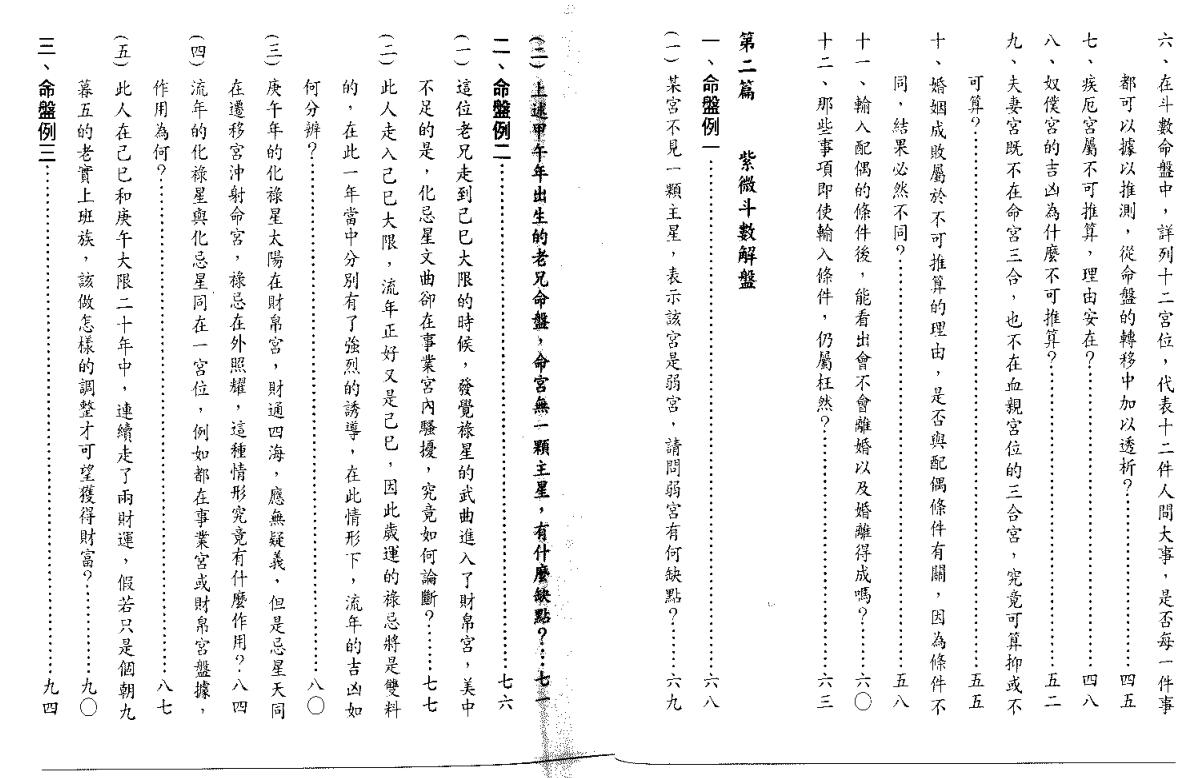 六、在斗數命盤中，詳列十二宮位，代表十二件人間大事，是否每一件事
都可以據以推測，從命盤的轉移中加以透析？……四五
七、疾厄宮屬不可推算，理由安在？……四八
八、奴僕宮的吉凶為什麼不可推算？……五二
九、夫妻宮既不在命宮三合，也不在血親宮位的三合宮，究竟可算抑或不
可算？……五五
十、婚姻成敗屬於不可推算的理由，是否與配偶條件有關，因為條件不
同，結果必然不同？……五八
十一、輸入配偶的條件後，能看出會不會離婚以及婚離得成嗎？……六〇
十二、那些事項即使輸入條件，仍屬枉然？……六三
第二篇　紫微斗數解盤
一、命盤例一……六八
(一)某宮不見一顆主星，表示該宮是弱宮，請問弱宮有何缺點？……六九
(二)上述甲午年出生的老兄命盤，命宮無一顆主星，有什麼缺點？……七一
二、命盤例二……七六
(一)這位老兄走到己巳大限的時候，發覺祿星的武曲進入了財帛宮，美中
不足的是，化忌星文曲卻在事業宮內騷擾，究竟如何論斷？……七七
(二)此人走入己巳大限，流年正好又是己巳，因此歲運的祿忌將是雙料
的，在此一年當中分別有了強烈的誘導，在此情形下，流年的吉凶如
何分辨？……八〇
(三)庚午年的化祿星太陽在財帛宮，財通四海，應無疑義，但是忌星天同
在遷移宮沖射命宮，祿忌在外照耀，這種情形究竟有什麼作用？……八四
(四)流年的化祿星與化忌星同在一宮位，例如都在事業宮或財帛宮盤據，
作用為何？……八七
(五)此人在己巳和庚午大限二十年中，連續走了兩財運，假若只是個朝九
暮五的老實上班族，該做怎樣的調整才可望獲得財富？……九〇
三、命盤例三……九四